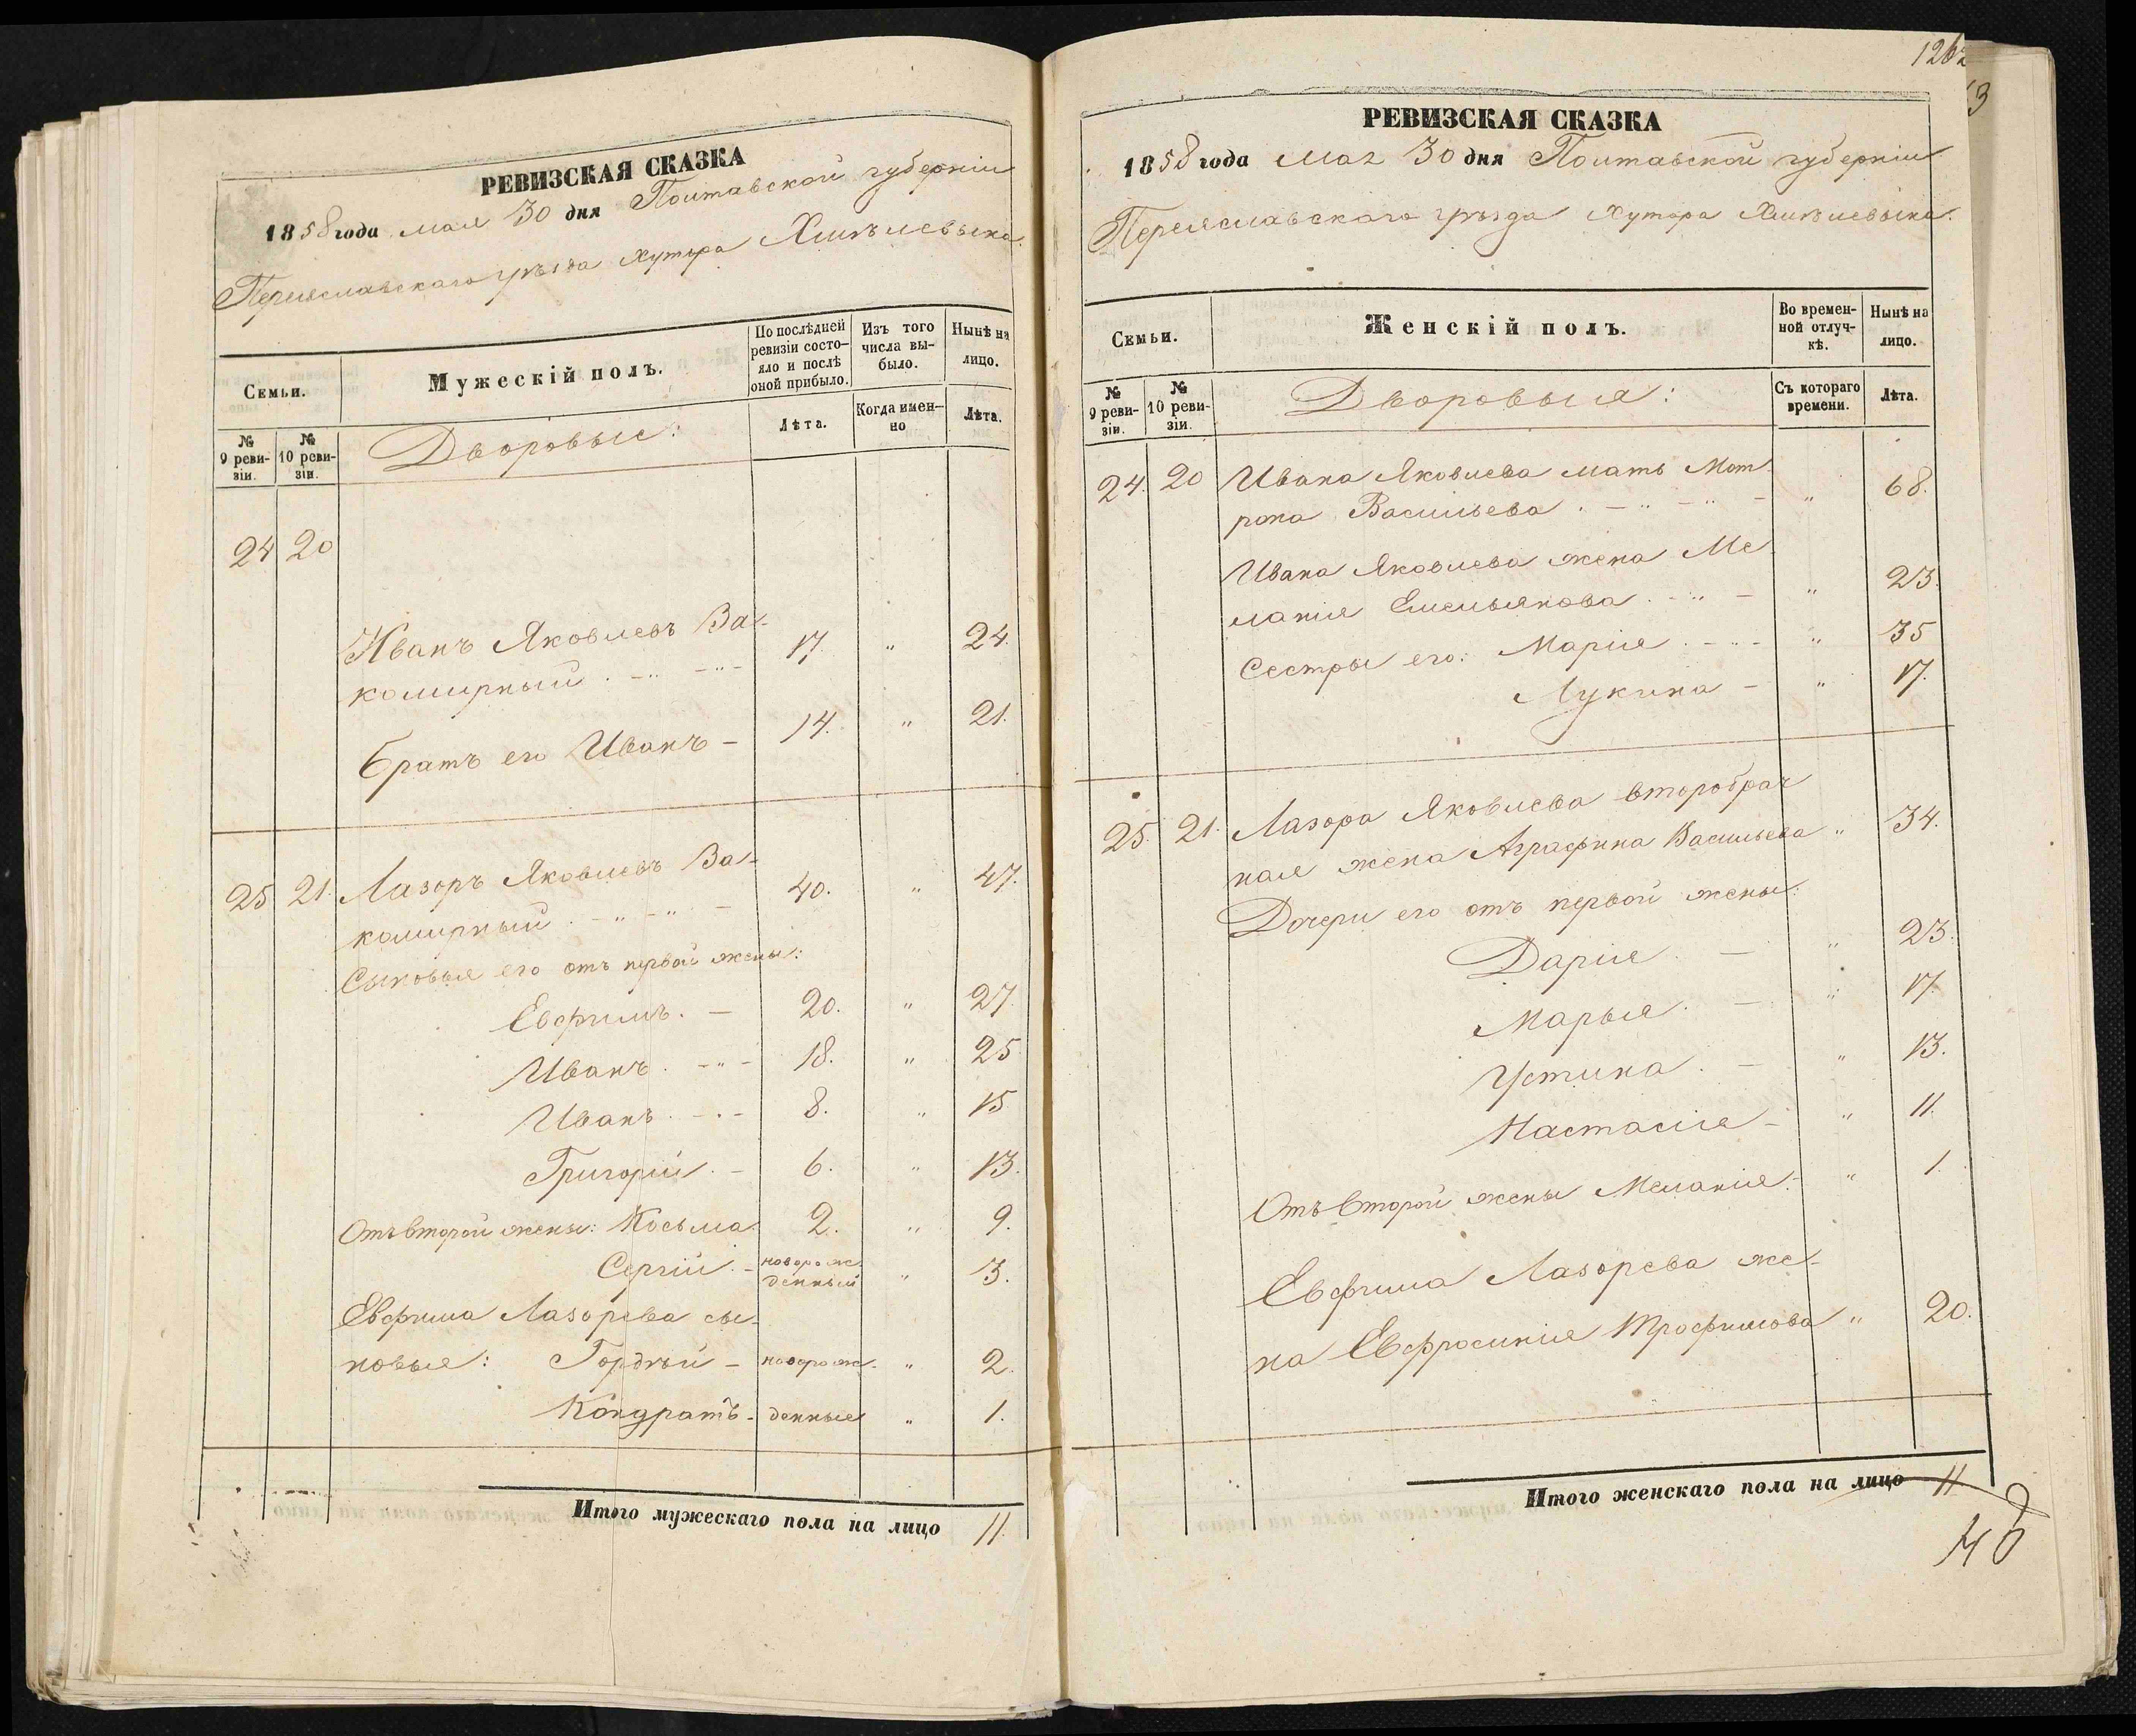 РЕВИЗСКАЯ СКАЗКА
1858 года мая 30 дня Полтавской губерніи
Переяславскаго уѣзда хутора
Семьи.
Мужескій полъ.
По послѣдней ревизіи состояло и послѣ оной прибыло.
Изъ того числа выбыло.
Нынѣ на лицо.
№ 9 ревизіи.
№ 10 ревизіи.
Дворовые:
Лѣта.
Когда именно
Лѣта.
24 20
Иванъ Яковлевъ Ва-
комирный . - „ - „ - 17. „ 24.
Братъ его Иванъ - 14. „ 21.
25 21. Лазоръ Яковлевъ Ва-
комирный . - „ - „ - 40. „ 47.
Сыновья его отъ первой жены:
Евфимъ . - 20. „ 27.
Иванъ . - „ - 18. „ 25
Иванъ . - „ - 8. „ 15
Григорій . - 6. „ 13.
Отъ второй жены: Косьма 2. „ 9.
Сергій . - новорож-
денный „ 3.
Евфима Лазорева сы-
новья: Гордѣй - новорож- „ 2.
Кондратъ - денные „ 1.
Итого мужескаго пола на лицо 11.
126
3
РЕВИЗСКАЯ СКАЗКА
1858 года мая 30 дня Полтавской губерніи
Переяславскаго уѣзда хутора
Семьи.
Женскій полъ.
Во временной отлучкѣ.
Нынѣ на лицо.
№ 9 ревизіи.
№ 10 ревизіи.
Дворовыя:
Съ котораго времени.
Лѣта.
24. 20 Ивана Яковлева мать Мот-
рона Васильева . - „ - „ - „ 68.
Ивана Яковлева жена Ме-
ланія Емельянова . - „ - „ 23.
Сестры его: Марія . - „ - „ 35
Лукина - „ 17.
25. 21. Лазора Яковлева второбрач-
ная жена Аграфина Васильева „ 34.
Дочери его отъ первой жены:
Дарія . - „ 23.
Марья . - „ 17.
Устина . - „ 13.
Настасія - „ 11.
Отъ второй жены Меланія - „ 1.
Евфима Лазорева же-
на Евфросинія Трофимова „ 20.
Итого женскаго пола на лицо 11.